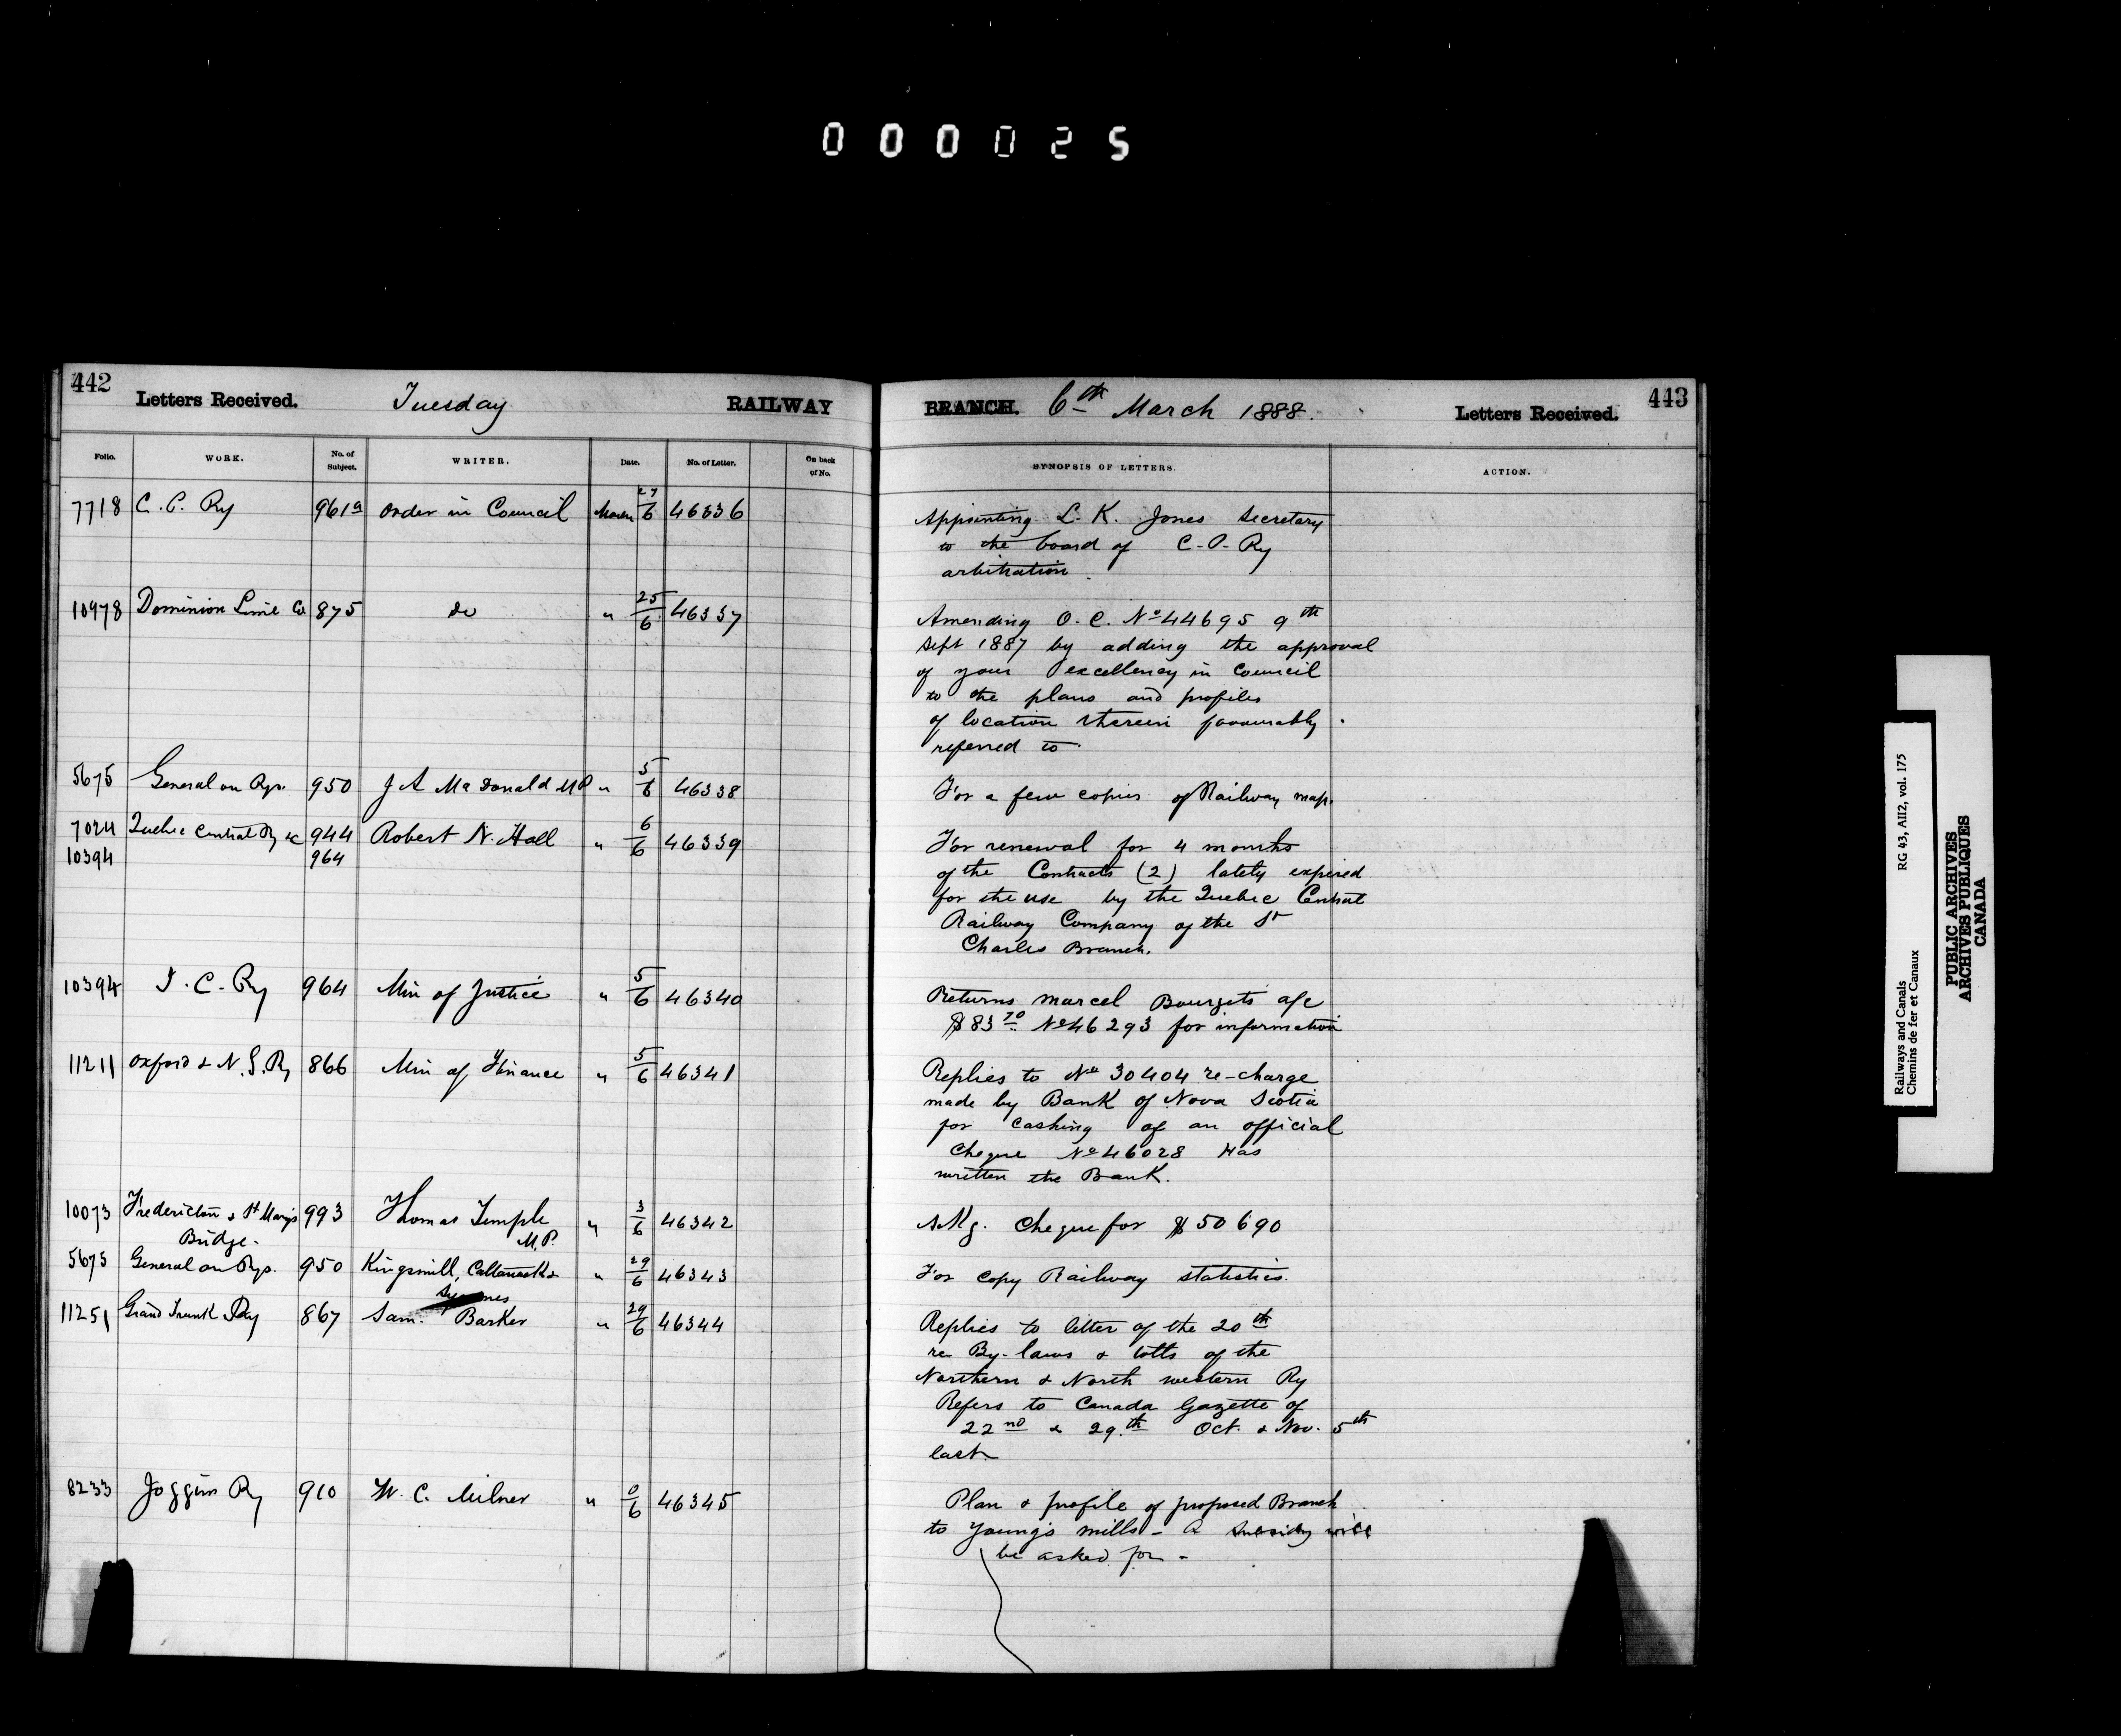 000025
442
Letters Received.
Tuesday
RAILWAY
Folio.
WORK.
No. of Subject.
WRITER.
Date.
No. of Letter.
On back of No.
7718 C. P. Ry 961a Order in Council March 27/6 46336
10978 Dominion Lime Co 875 do " 25/6 46337
5675 General on Rys. 950 J A McDonald MP " 5/6 46338
7024 Quebec Central Ry &c 944 Robert N. Hall " 6/6 46339
10394 964
10394 I. C. Ry 964 Min of Justice " 5/6 46340
11211 Oxford & N. G. Ry 866 Min of Finance " 5/6 46341
10073 Fredericton & St Mary's 993 Thomas Temple " 3/6 46342
Bridge. M.P.
5675 General on Rys. 950 Kingsmill, Cattanach & " 29/6 46343
Symones
11251 Grand Trunk Ry 867 Sam. Barker " 29/6 46344
8233 Joggins Ry 910 W. C. Milner " 0/6 46345
BRANCH. 6th March 1888.
Letters Received.
443
SYNOPSIS OF LETTERS.
ACTION.
Appointing L. K. Jones Secretary
to the board of C. P. Ry
arbitration.
Amending O. C. No 44695 9th
Sept 1887 by adding the approval
of your excellency in Council
to the plans and profiles
of location therein favourably
referred to
For a few copies of Railway map.
For renewal for 4 months
of the Contracts (2) lately expired
for the use by the Quebec Central
Railway Company of the St
Charles Branch.
Returns Marcel Bourgets a/c
$83 70 No 46293 for information
Replies to No 30404 re-charge
made by Bank of Nova Scotia
for cashing of an official
Cheque No 46028 Has
written the Bank.
Akg. Cheque for $50690
For copy Railway statistics.
Replies to letter of the 20th
re By-laws & tolls of the
Northern & North western Ry
Refers to Canada Gazette of
22nd & 29th Oct. & Nov. 5th
last.
Plan & profile of proposed Branch
to Young's mills - A subsidy will
be asked for -
Railways and Canals RG 43, AII2, vol. 175
Chemins de fer et Canaux
PUBLIC ARCHIVES
ARCHIVES PUBLIQUES
CANADA